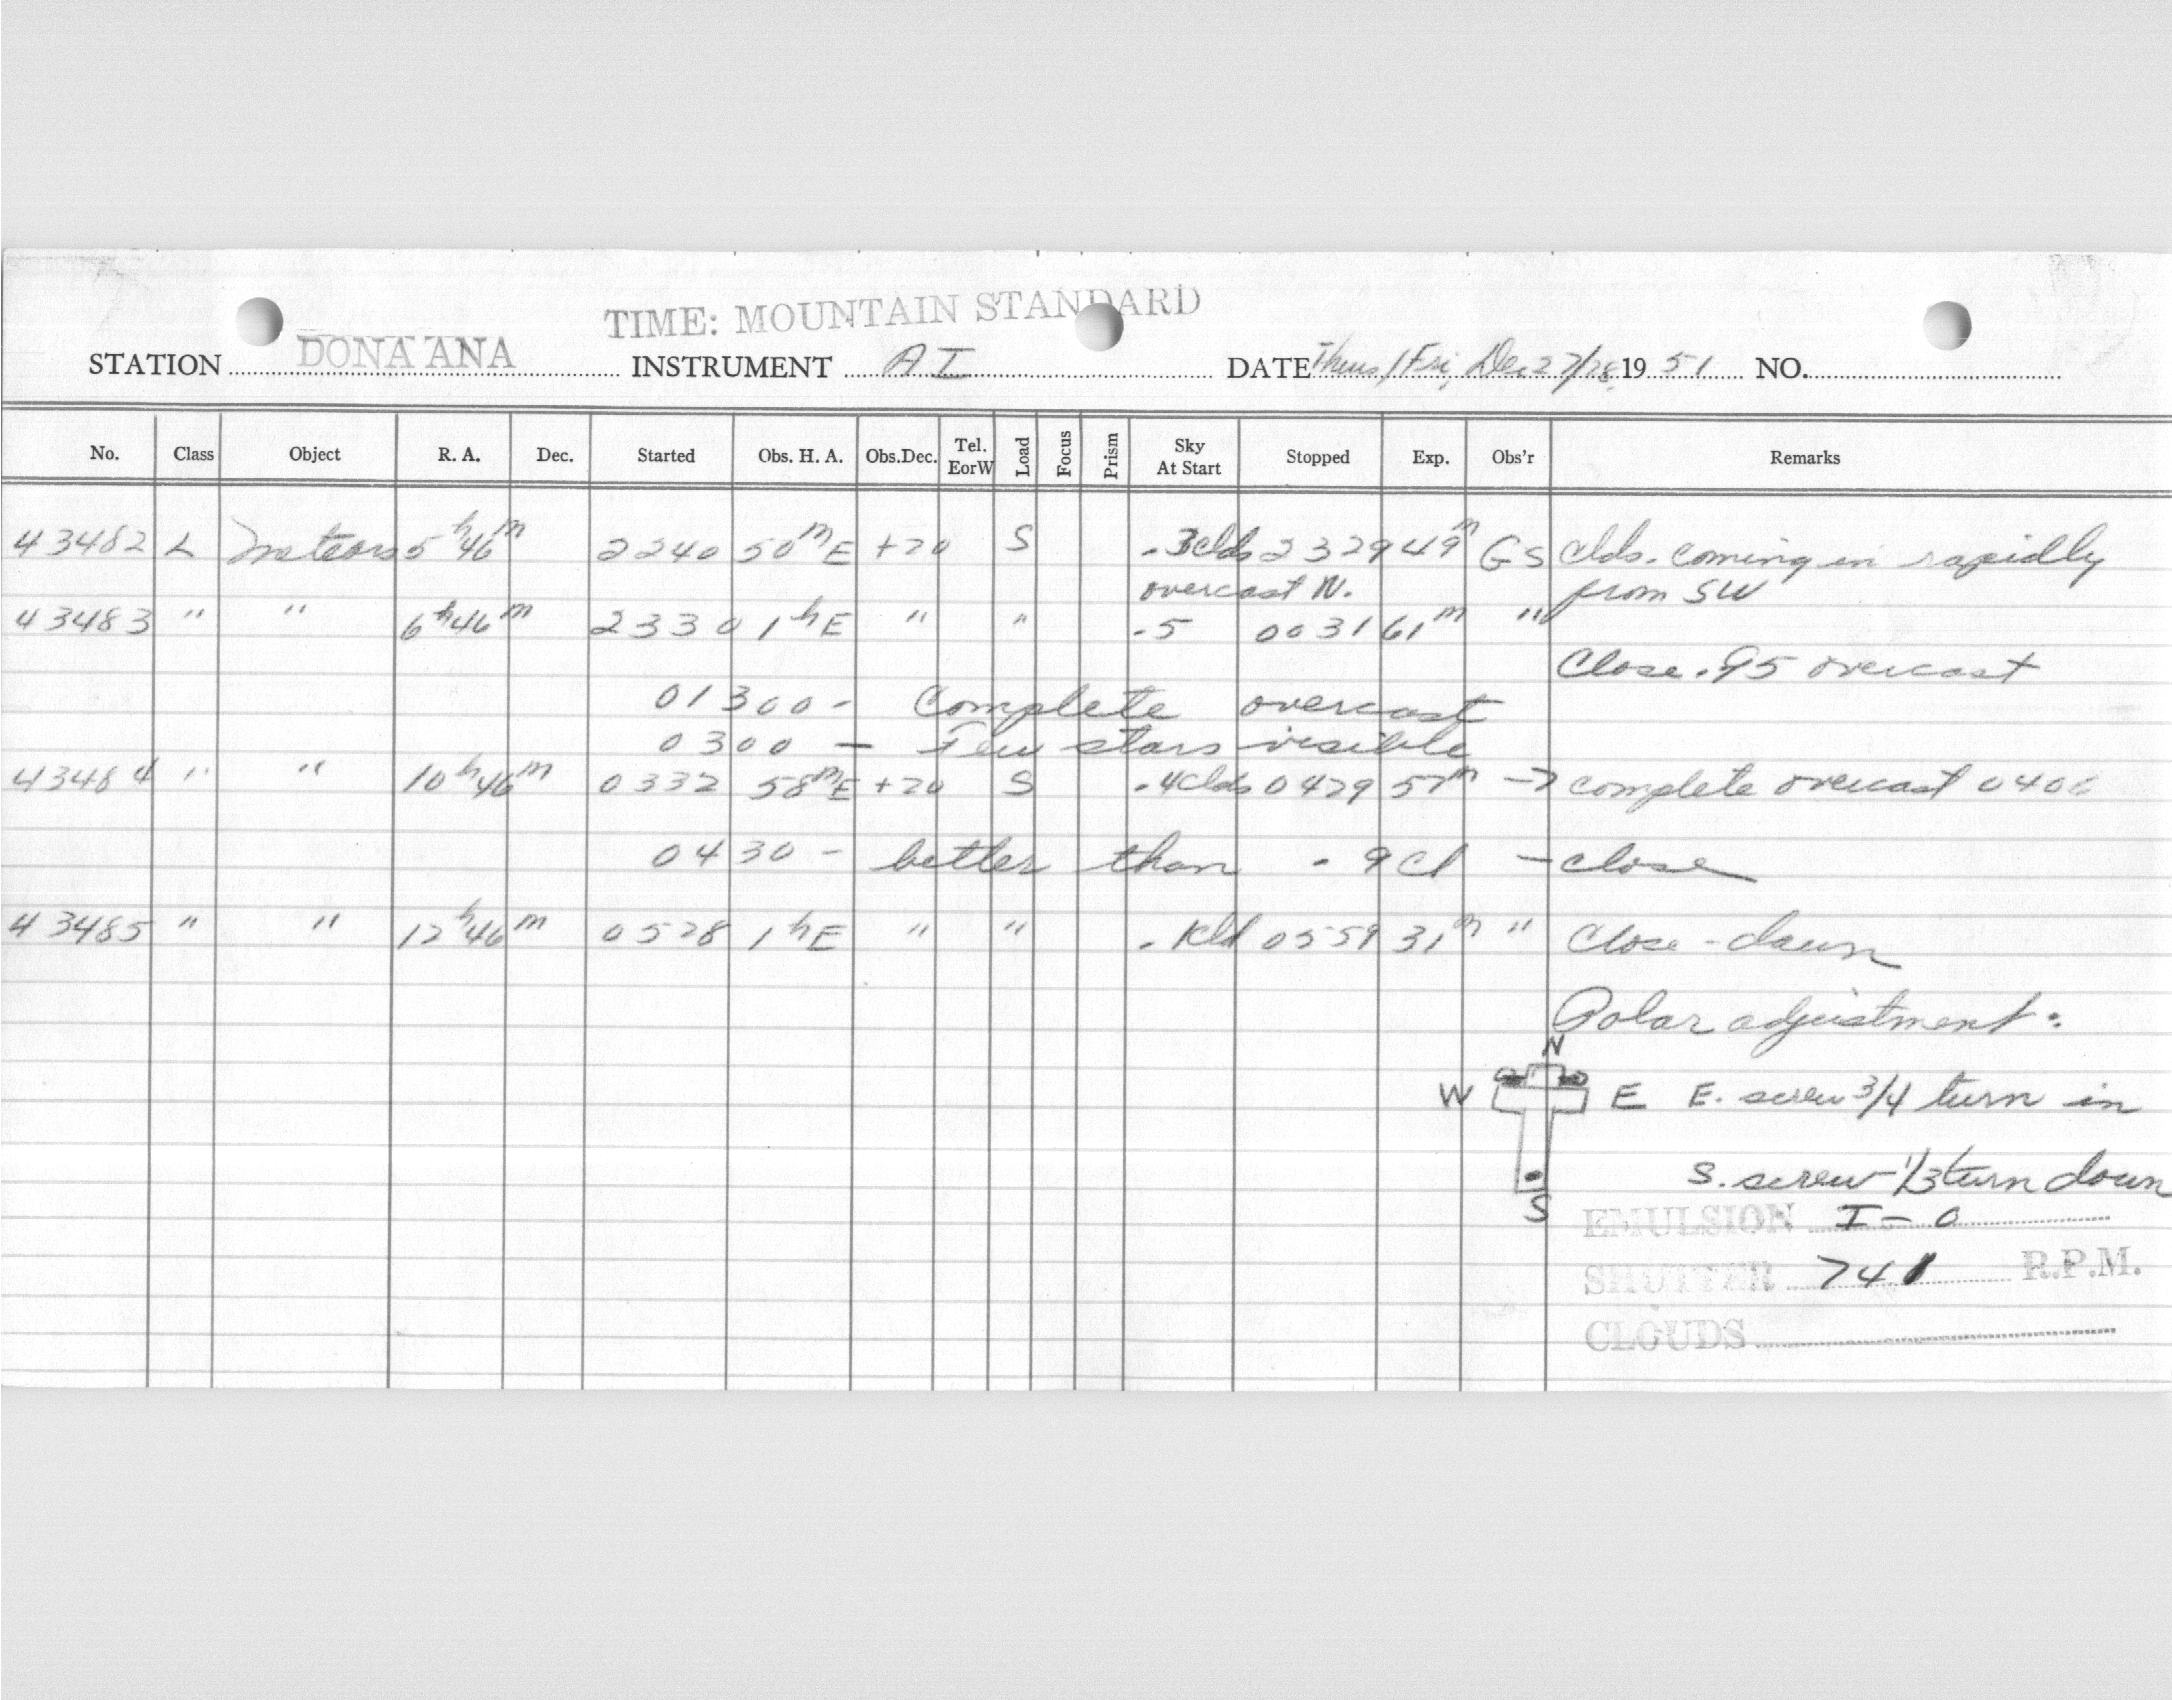 TIME: MOUNTAIN STANDARD
STATION DONA ANA INSTRUMENT AI DATE Thurs/Fri, Dec 27/28, 19 51 NO.
No. Class Object R. A. Dec. Started Obs. H. A. Obs.Dec. Tel. EorW Load Focus Prism Sky At Start Stopped Exp. Obs'r Remarks
43482 L Meteors 5h46m 2240 50mE +20 S .3clds 2329 49m GS Clds. coming in rapidly
overcast N. from SW
43483 " " 6h46m 2330 1hE " " .5 0031 61m "
Close .95 overcast
01300 - Complete overcast
0300 - Few stars visible
43484 " " 10h46m 0332 58mE +20 S .4clds 0429 57m → complete overcast
0430 - better than .9cl - close
43485 " " 12h46m 0528 1hE " " .1cld 0559 31m " Close - dawn
Polar adjustment:
N
W E E. screw 3/4 turn in
S. screw 1/3 turn down
S
EMULSION I-O
SHUTTER 741 R.P.M.
CLOUDS